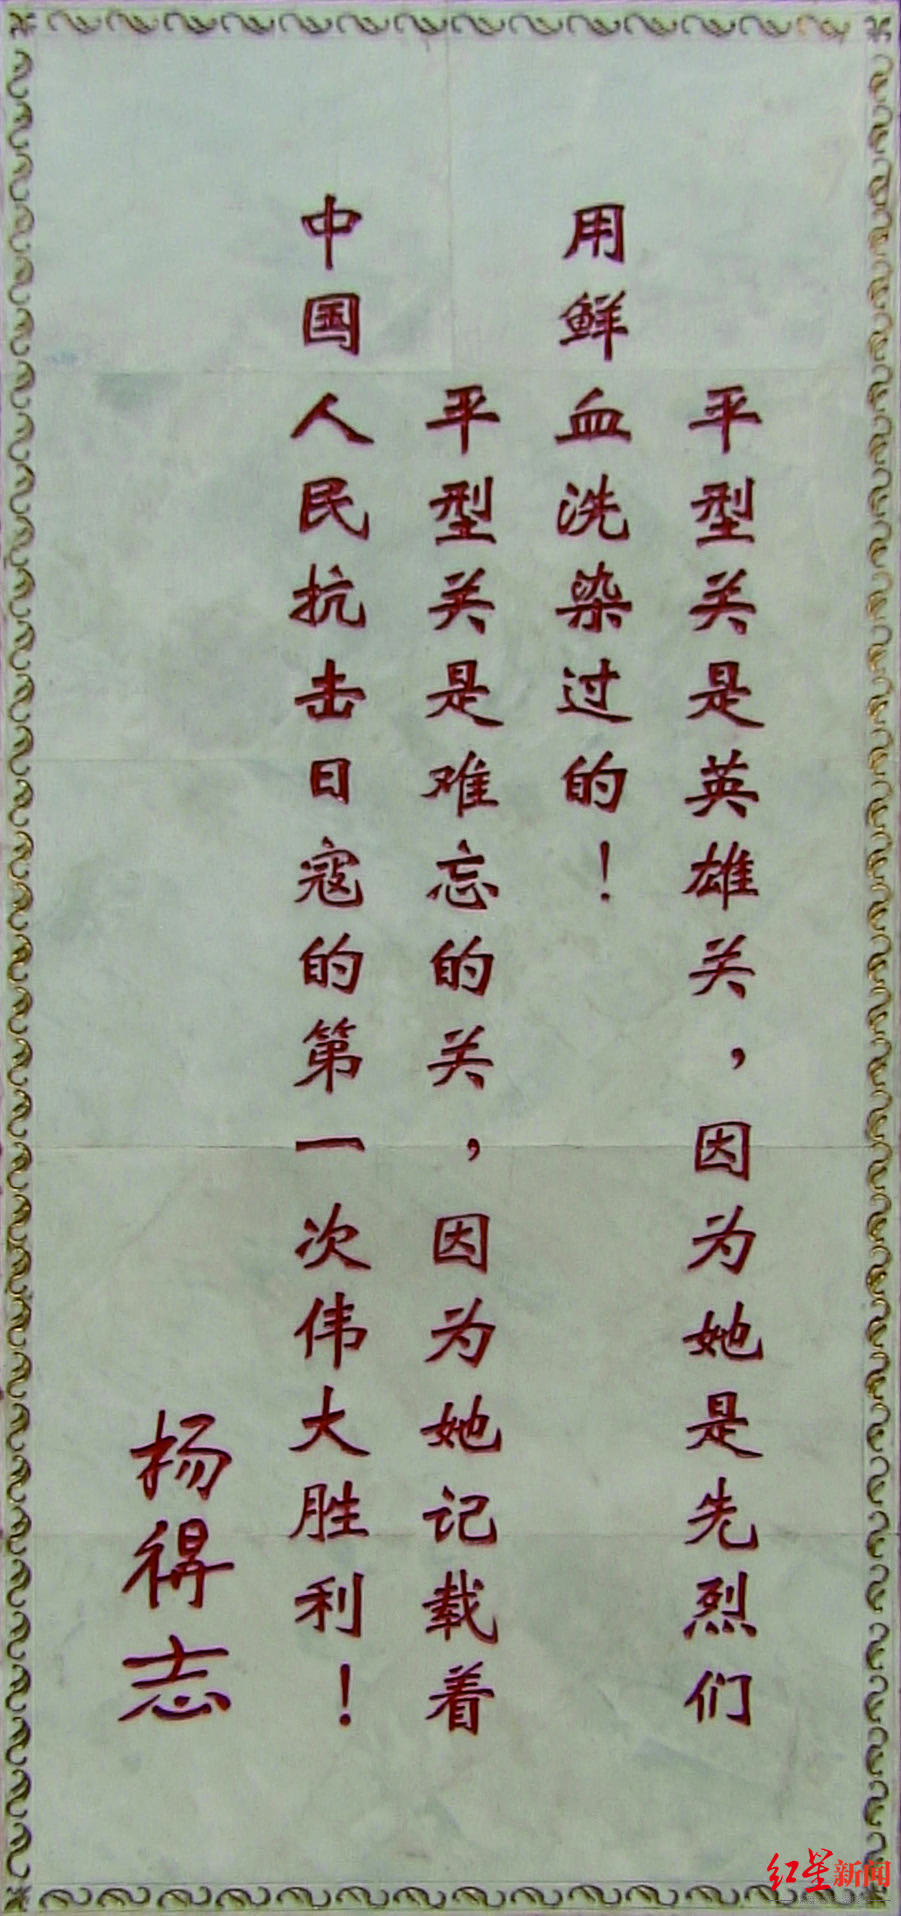 平型关是英雄关，因为她是先烈们
用鲜血洗染过的！
平型关是难忘的关，因为她记载着
中国人民抗击日寇的第一次伟大胜利！
杨得志
红星新闻